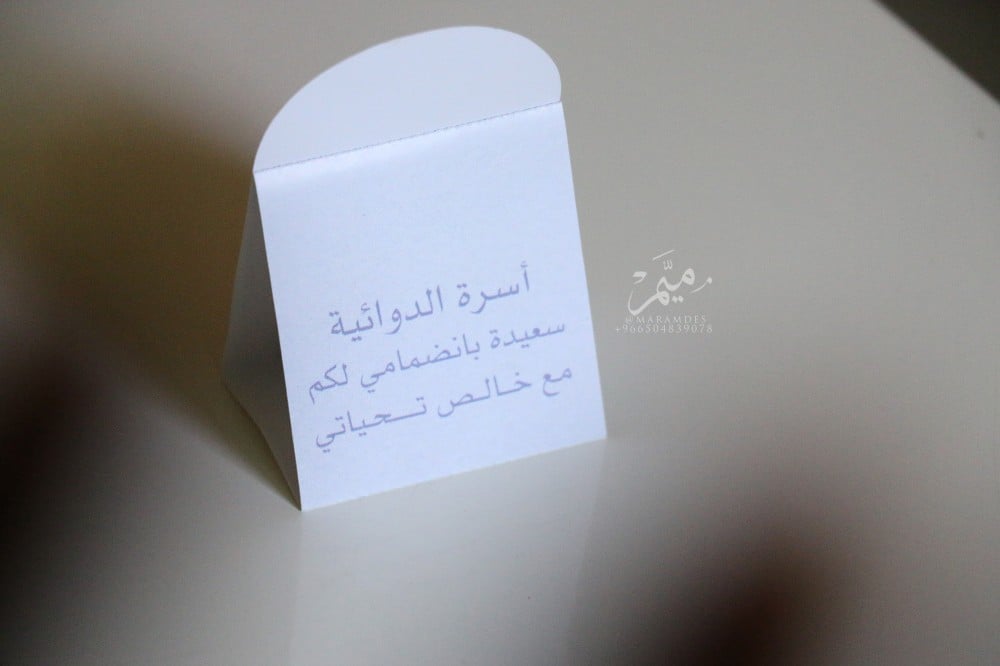 أسرة الدوائية
سعيدة بانضمامي لكم
مع خالص تحياتي
ميم
@MARAMDES
+966504839078